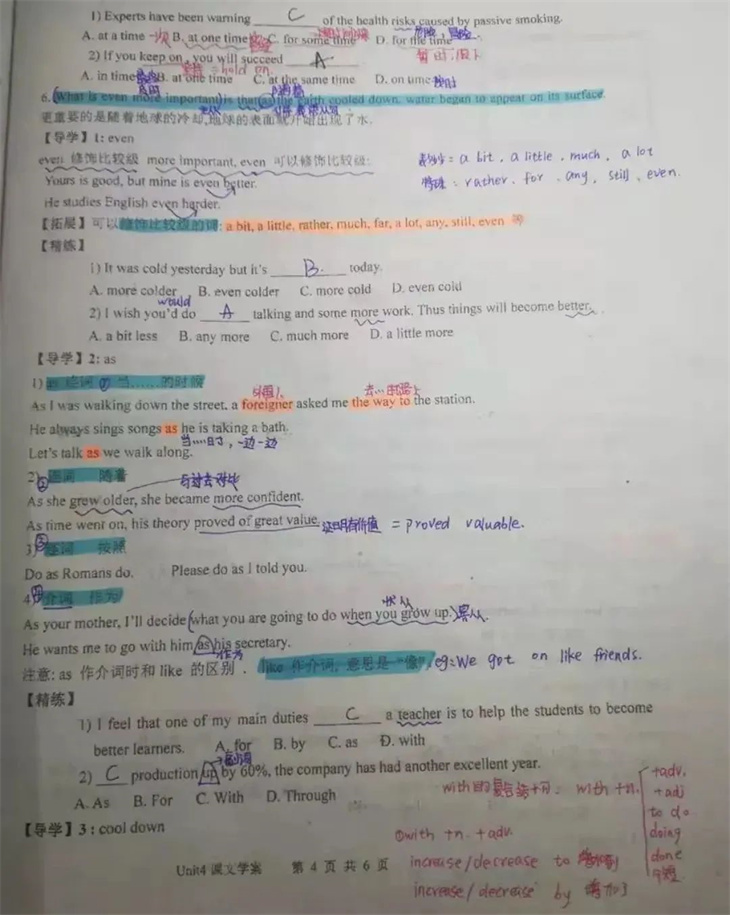 1) Experts have been warning C of the health risks caused by passive smoking.
A. at a time 一次 B. at one time C. for some time D. for the time 冒险
暂时
2) If you keep on, you will succeed A
坚持 = hold on
A. in time B. at one time C. at the same time D. on time 按时
6. (What is even more important) is that (as) the earth cooled down, water began to appear on its surface.
更重要的是随着地球的冷却,地球的表面就开始出现了水.
【导学】1: even
even 修饰比较级 more important, even 可以修饰比较级:
: a bit, a little, much, a lot
Yours is good, but mine is even better.
: rather, for, any, still, even.
He studies English even harder.
【拓展】可以修饰比较级的词: a bit, a little, rather, much, far, a lot, any, still, even 等
【精练】
1) It was cold yesterday but it's B. today.
A. more colder B. even colder C. more cold D. even cold
would
2) I wish you'd do A talking and some more work. Thus things will become better.
A. a bit less B. any more C. much more D. a little more
【导学】2: as
1) as 连词 ① 当……的时候
外国人 去…的路上
As I was walking down the street, a foreigner asked me the way to the station.
He always sings songs as he is taking a bath.
当…时, 一边一边
Let's talk as we walk along.
2) ② 连词 随着 与过去对比
As she grew older, she became more confident.
As time went on, his theory proved of great value. 证明有价值 = proved valuable.
3) ③ 连词 按照
Do as Romans do. Please do as I told you.
4) ④ 介词 作为
状从
As your mother, I'll decide (what you are going to do when you grow up.) 宾从
He wants me to go with him as his secretary.
作为
注意: as 作介词时和 like 的区别. like 作介词, 意思是“像”, eg: We got on like friends.
【精练】
1) I feel that one of my main duties C a teacher is to help the students to become
better learners. A. for B. by C. as D. with
副词
2) C production up by 60%, the company has had another excellent year.
A. As B. For C. With D. Through
with的复合结构: with +n. +adv.
+adj
to do
doing
done
介短
【导学】3 : cool down
①with +n. +adv.
increase/decrease to 增加到
increase/decrease by 增加了
Unit4 课文学案 第 4 页 共 6 页